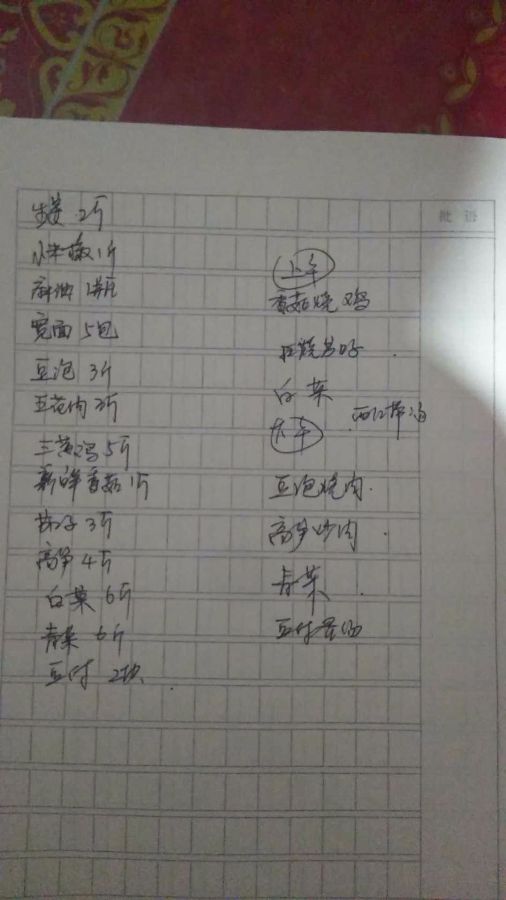 生姜 2斤
小米椒 1斤
麻油 1瓶
宽面 5包
豆泡 3斤
五花肉 3斤
三黄鸡 5斤
新鲜香菇 1斤
茄子 3斤
高笋 4斤
白菜 6斤
青菜 6斤
豆付 2块
批语
上午
香菇烧鸡
红烧茄子
白菜
下午
豆泡烧肉
高笋炒肉
青菜
豆付蛋汤